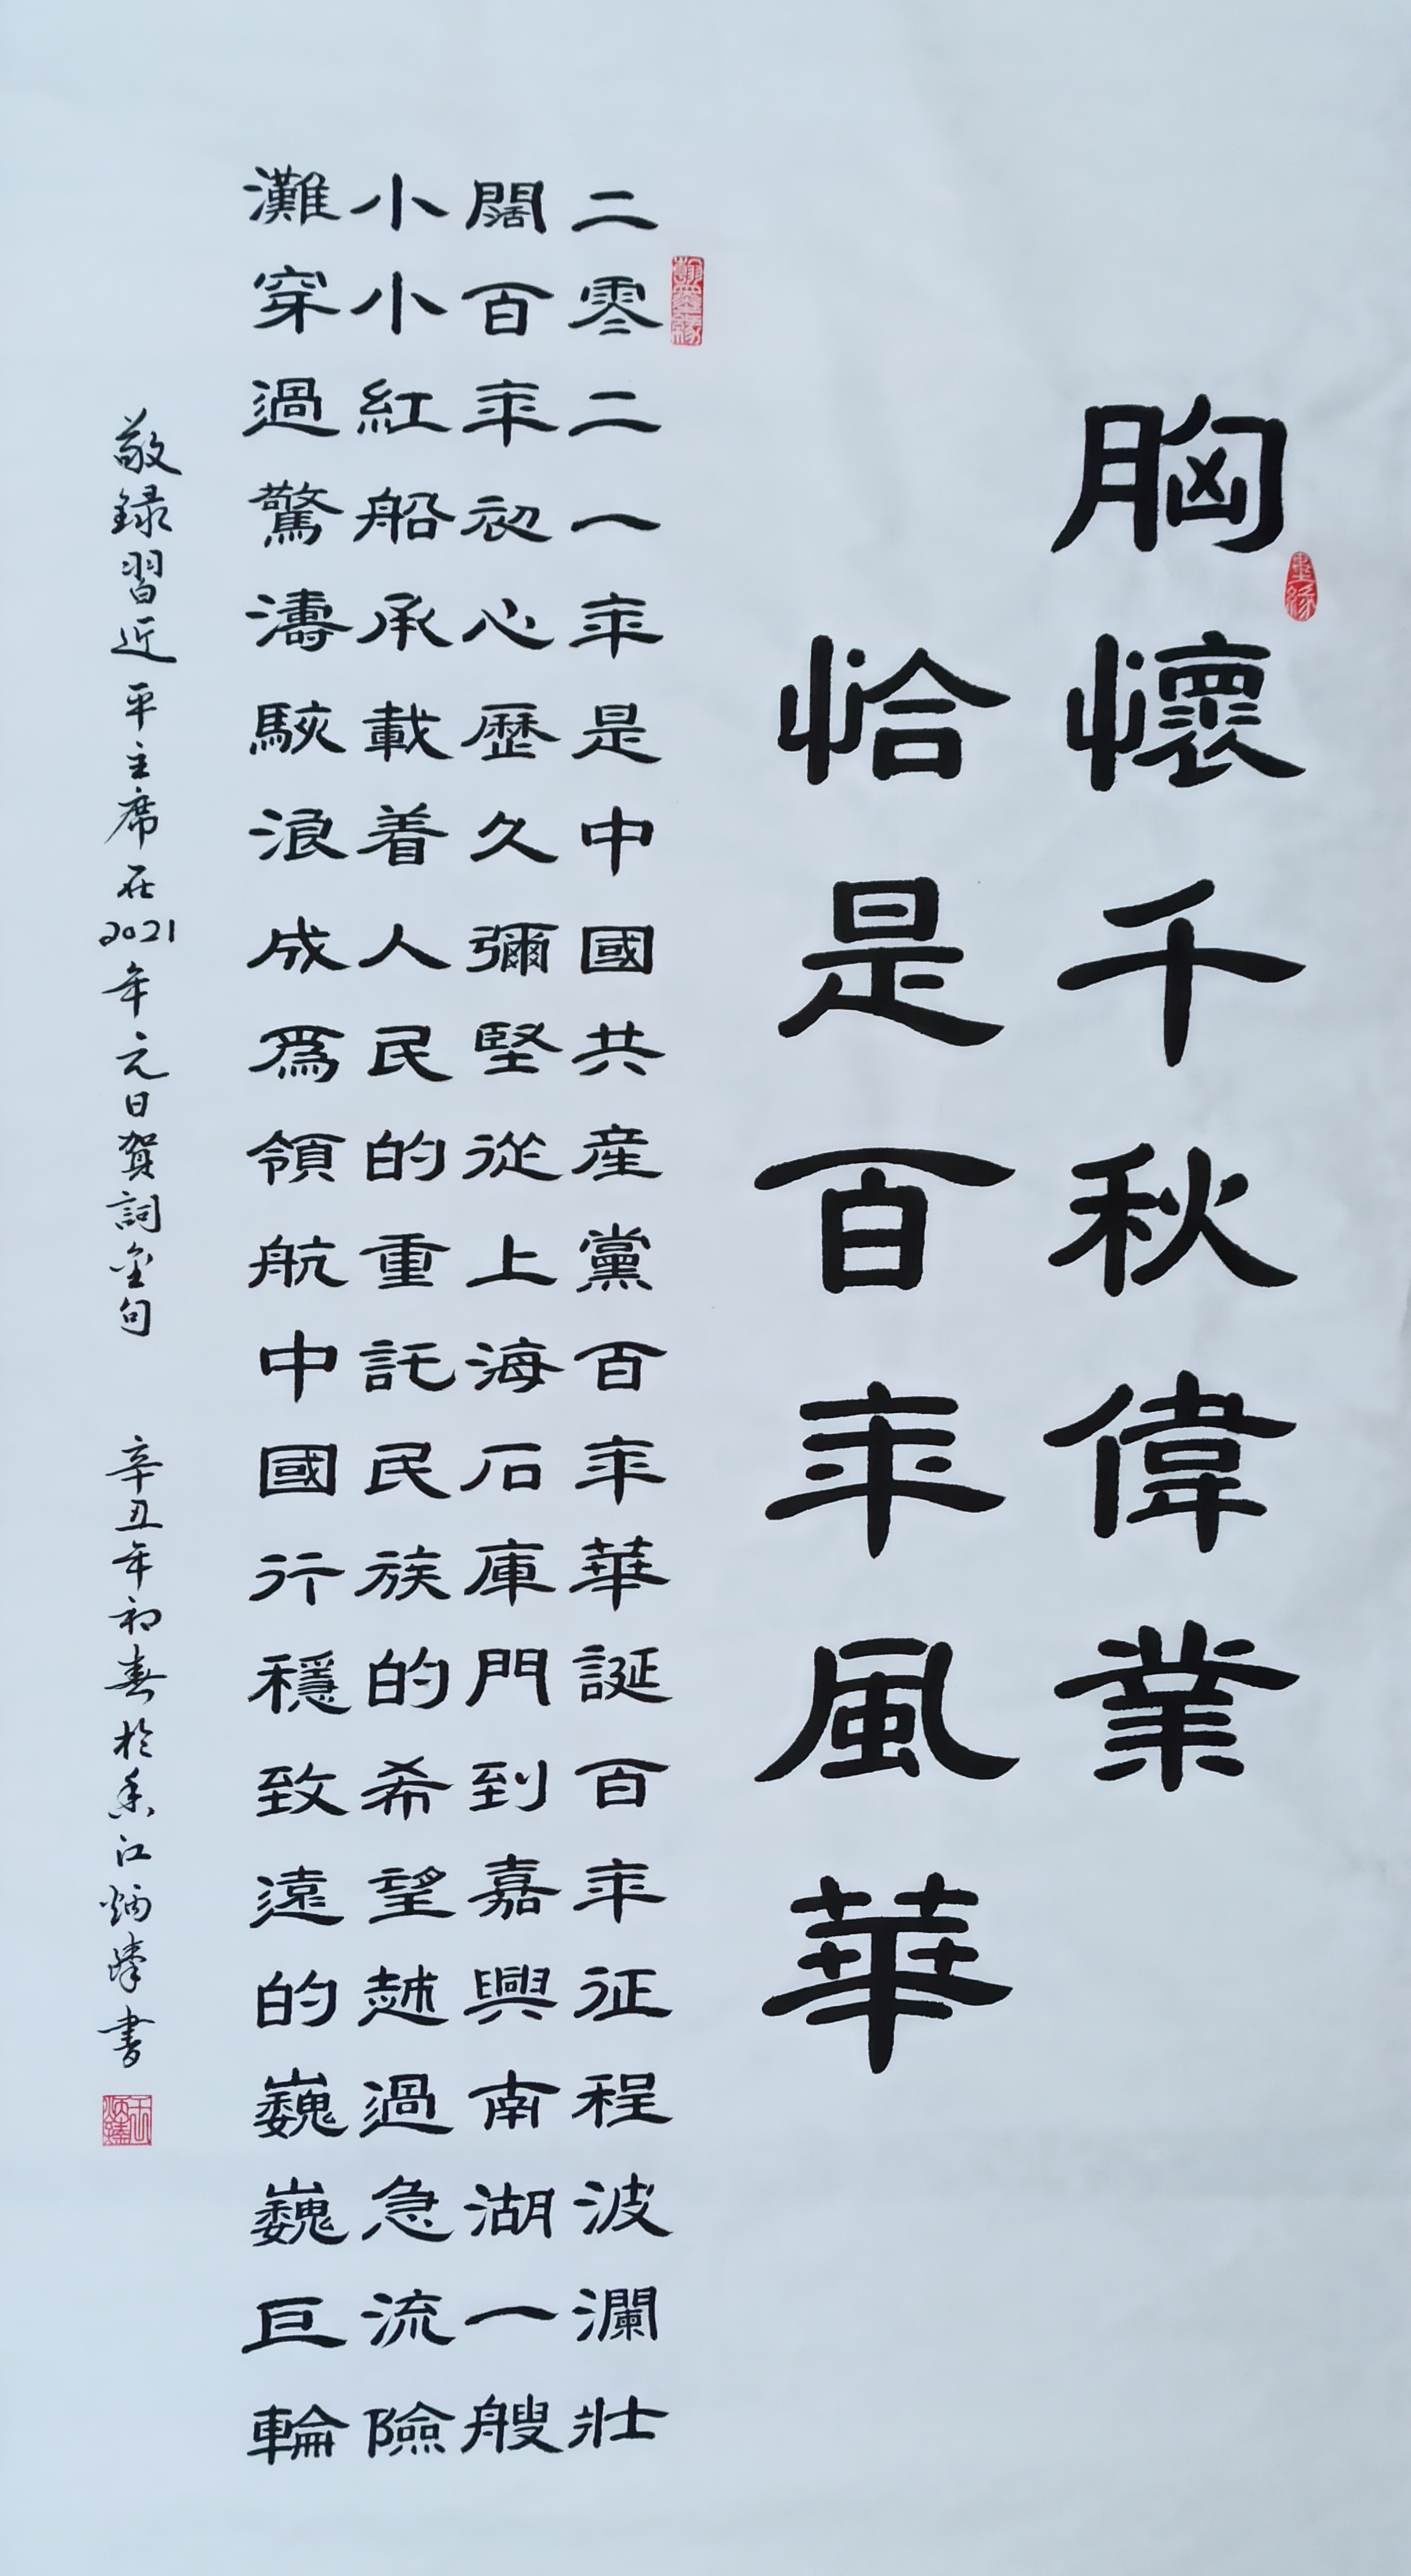 胸懷千秋偉業
恰是百年風華
二零二一年是中國共産黨百年華誕百年征程波瀾壯
闊百年初心歷久彌堅從上海石庫門到嘉興南湖一艘
小小紅船承載着人民的重託民族的希望越過急流險
灘穿過驚濤駭浪成爲領航中國行穩致遠的巍巍巨輪
敬録習近平主席在2021年元日賀詞金句 辛丑年初春於香江炳臻書
墨緣
翰墨緣